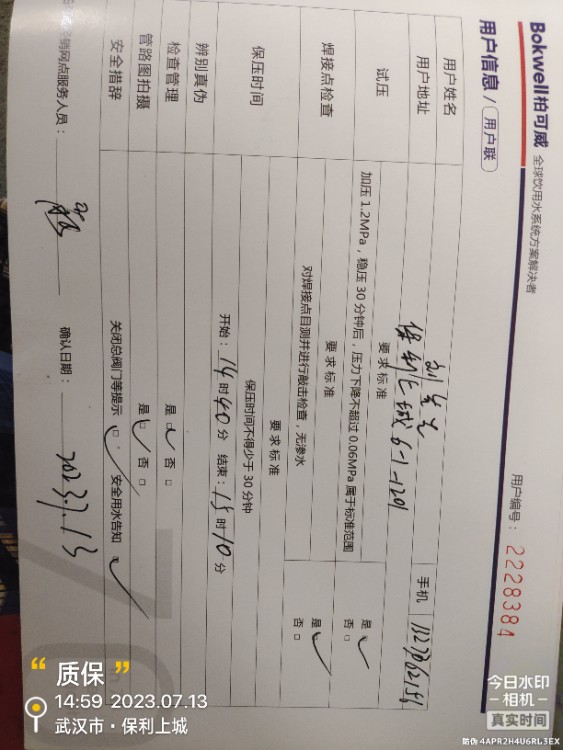 Bokwell柏可威 全球饮用水系统方案解决者
用户信息/用户联 用户编号：2228384
用户姓名 刘先生 手机
用户地址 保利上城6-1-1201
试压 要求标准
加压 1.2MPa，稳压 30 分钟后，压力下降不超过 0.06MPa 属于标准范围 是 ✓ 否 □
焊接点检查 要求标准
对焊接点目测并进行敲击检查，无渗水 是 ✓ 否 □
保压时间 要求标准
保压时间不得少于 30 分钟
开始：14 时 40 分 结束：15 时 10 分
辨别真伪
检查管理 是 ✓ 否 □
管路图拍摄 是 ✓ 否 □
安全措辞 关闭总阀门等提示 □ ✓ 安全用水告知 ✓
销网点服务人员： 确认日期：2023.7.13
“质保”
14:59 2023.07.13
武汉市·保利上城
今日水印
相机
真实时间
防伪 4APR2H4U6RL3EX